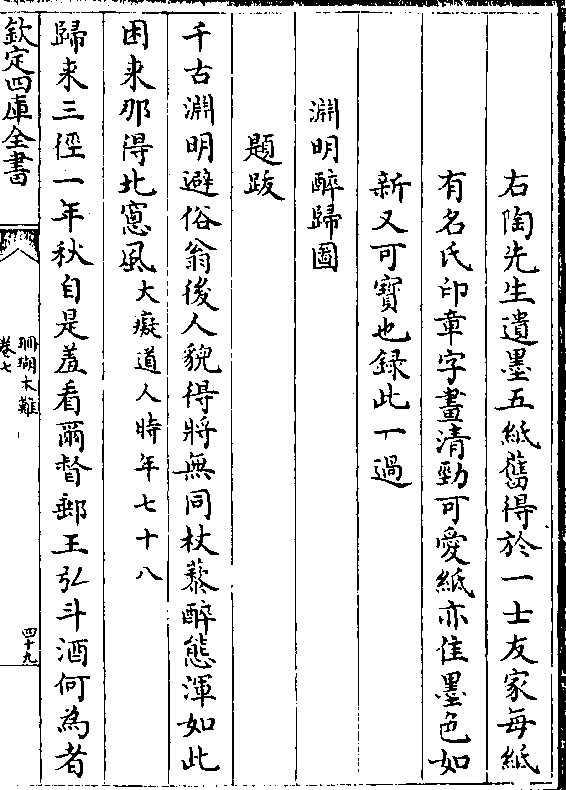 右陶先生遺墨五紙舊得於一士友家每紙
有名氏印章字畫清勁可愛紙亦佳墨色如
新又可寶也録此一過
淵明醉歸圖
題跋
千古淵明避俗翁後人貌得將無同杖藜醉態渾如此
困来那得北窻風大癡道人時年七十八
歸来三徑一年秋自是羞看爾督郵王弘斗酒何為者
欽定四庫全書
珊瑚木難
卷七
四十九